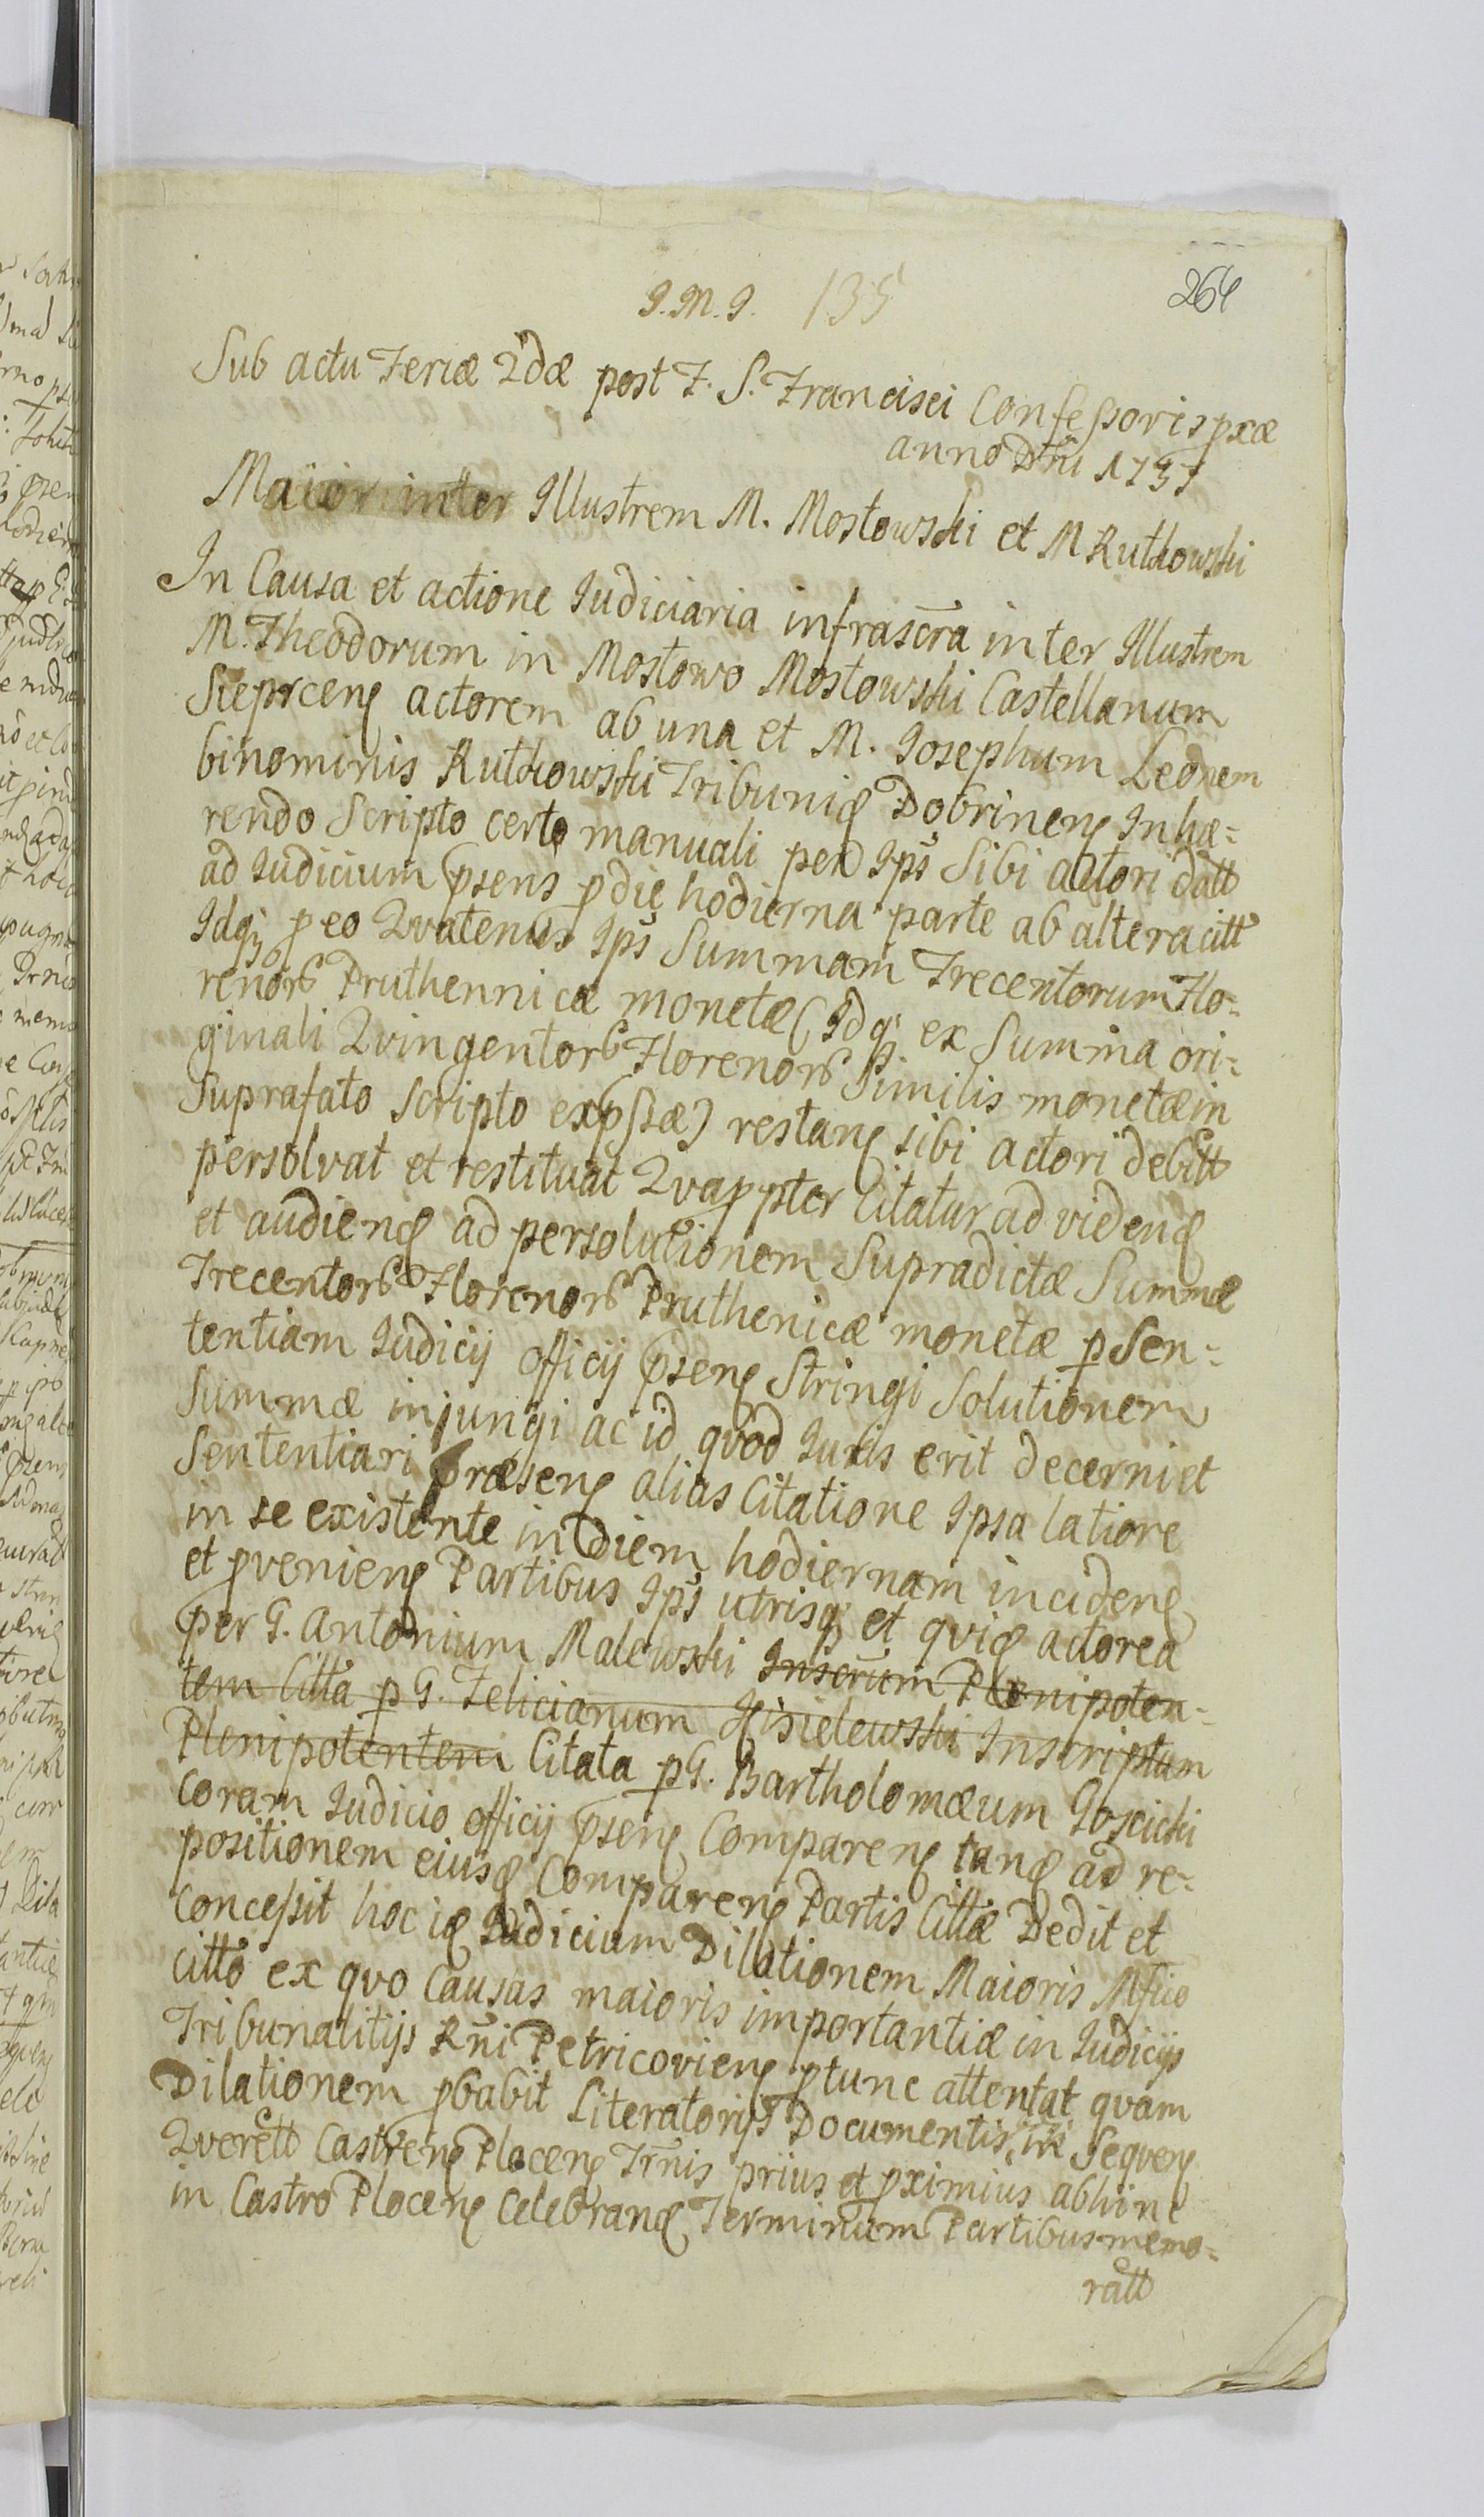 J. M. J. 135
264
Sub actu Feriæ 2dæ post F. S. Francisci Confessoris pxæ
anno Dni 1737
Maior inter Illustrem M. Mostowski et M Rutkowski
In Causa et actione Judiciaria infrascra inter Illustrem
M. Theodorum in Mostowo Mostowski Castellanum
Sieprcens actorem ab una et M. Josephum Leonem
binominis Rutkowski Tribunid Dobrinens Inhæ=
rendo Scripto certo manuali per Ips Sibi actori datt
ad Judicium psens p die hodierna parte ab altera citt
Idq; p eo Qvatenus Ips Summam Trecentorum Flo=
renorb Pruthennicæ monetæ (Idq; ex Summa ori=
ginali Qvingentorb Florenorb Similis monetæ in
Suprafato Scripto expssæ) restans sibi actori debitt
persolvat et restituat Qvappter Citatur ad videnđ
et audienđ ad persolutionem Supradictæ Summæ
Trecentorb Florenorb Pruthenicæ monetæ p Sen=
tentiam Judicij officij psens Stringi Solutionem
Summæ injungi ac id qvod Juris erit decerni et
Sententiari Præsens alias Citatione Ipsa latiore
in se existente in Diem hodiernam incidens
et pveniens Partibus Ips utrisq; et qvid actorea
per G. Antonium Malewski Inscrum Plenipoten=
tem Citta p G. Felicianum Kisielewski Inscriptum
Plenipotentem Citata p G. Bartholomæum Goscicki
Coram Judicio officij psens Comparens tanđ ad re=
positionem eiusđ Comparens Partis Cittæ Dedit et
Concessit hoc iđ Judicium Dilationem Maioris Mfico
citto ex qvo Causas maioris importantiæ in Judicijs
Tribunalitijs Rni Petricoviens ptunc attentat qvam
Dilationem pbabit Literatorijs Documentis in Seqvens
Qverett Castrens Plocens Trnis prius et pximius abhinc
in Castro Plocens Celebranđ Terminum Partibus memo=
ratt